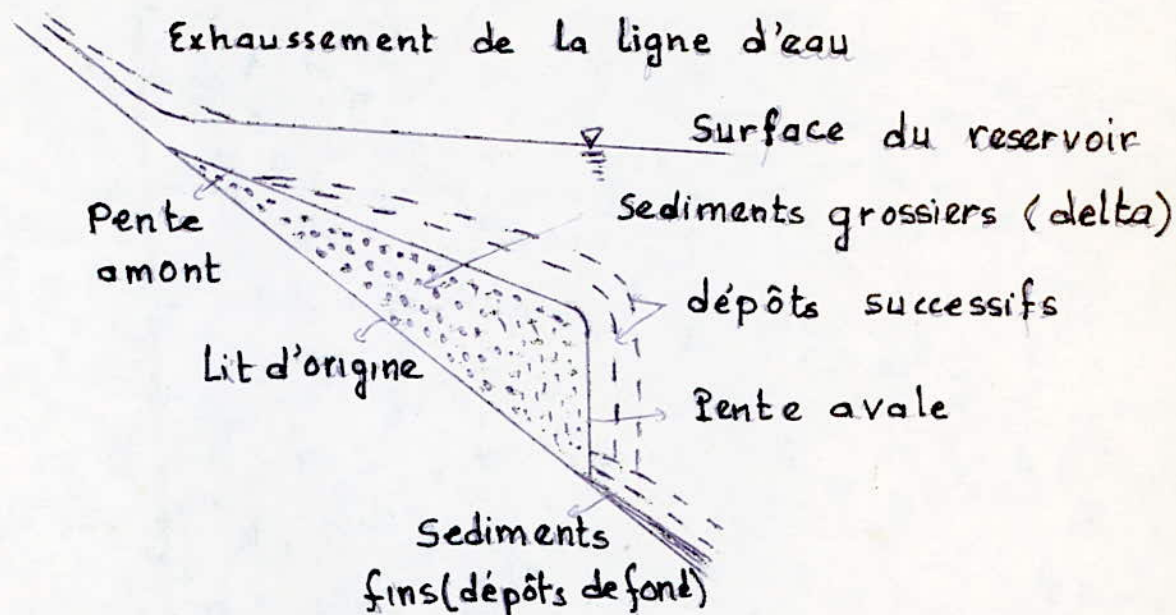 Exhaussement de la ligne d'eau
Surface du reservoir
Sediments grossiers (delta)
Pente
amont
dépôts successifs
Lit d'origine
Pente avale
Sediments
fins (dépôts de fond)